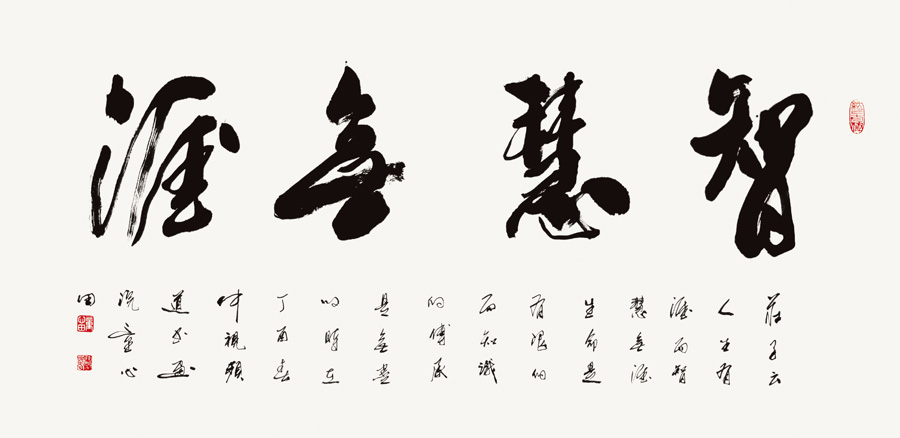 智慧無涯
莊子云
人生有
涯而智
慧無涯
生命是
有限的
而知識
的傳承
是無盡
的時在
丁酉春
視頻
道书画
院童心
田